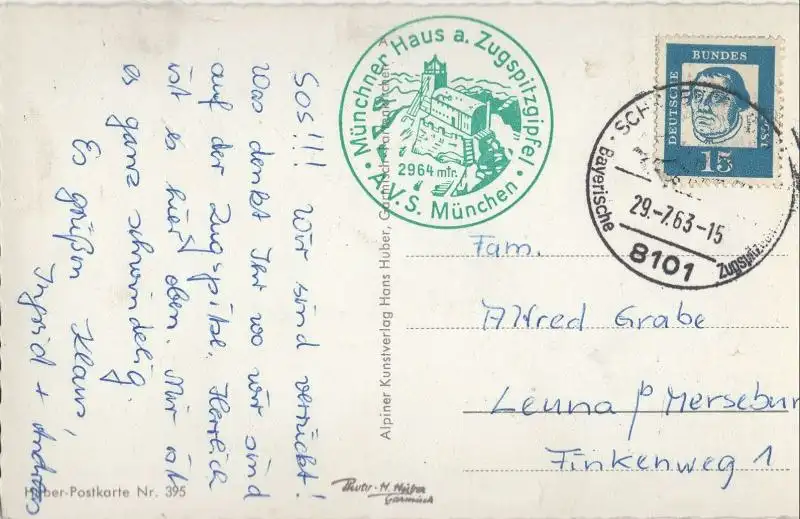 SOS!!! Wir sind verrückt!
Was denkt Ihr wo wir sind
auf der Zugspitze. Herrlich
ist es hier oben. Mir ist
es ganz schwindelig.
Es grüßen Klaus,
Ingrid + Andreas
Huber-Postkarte Nr. 395
Münchner Haus a. Zugspitzgipfel
2964 mtr.
A.V.S. München
Alpiner Kunstverlag Hans Huber, Garmisch-Partenkirchen
Photo-H. Huber
Garmisch
DEUTSCHE
BUNDES
15
Bayerische
29.-7.63-15
8101
Fam.
Alfred Grabe
Leuna p Mersebur
Finkenweg 1